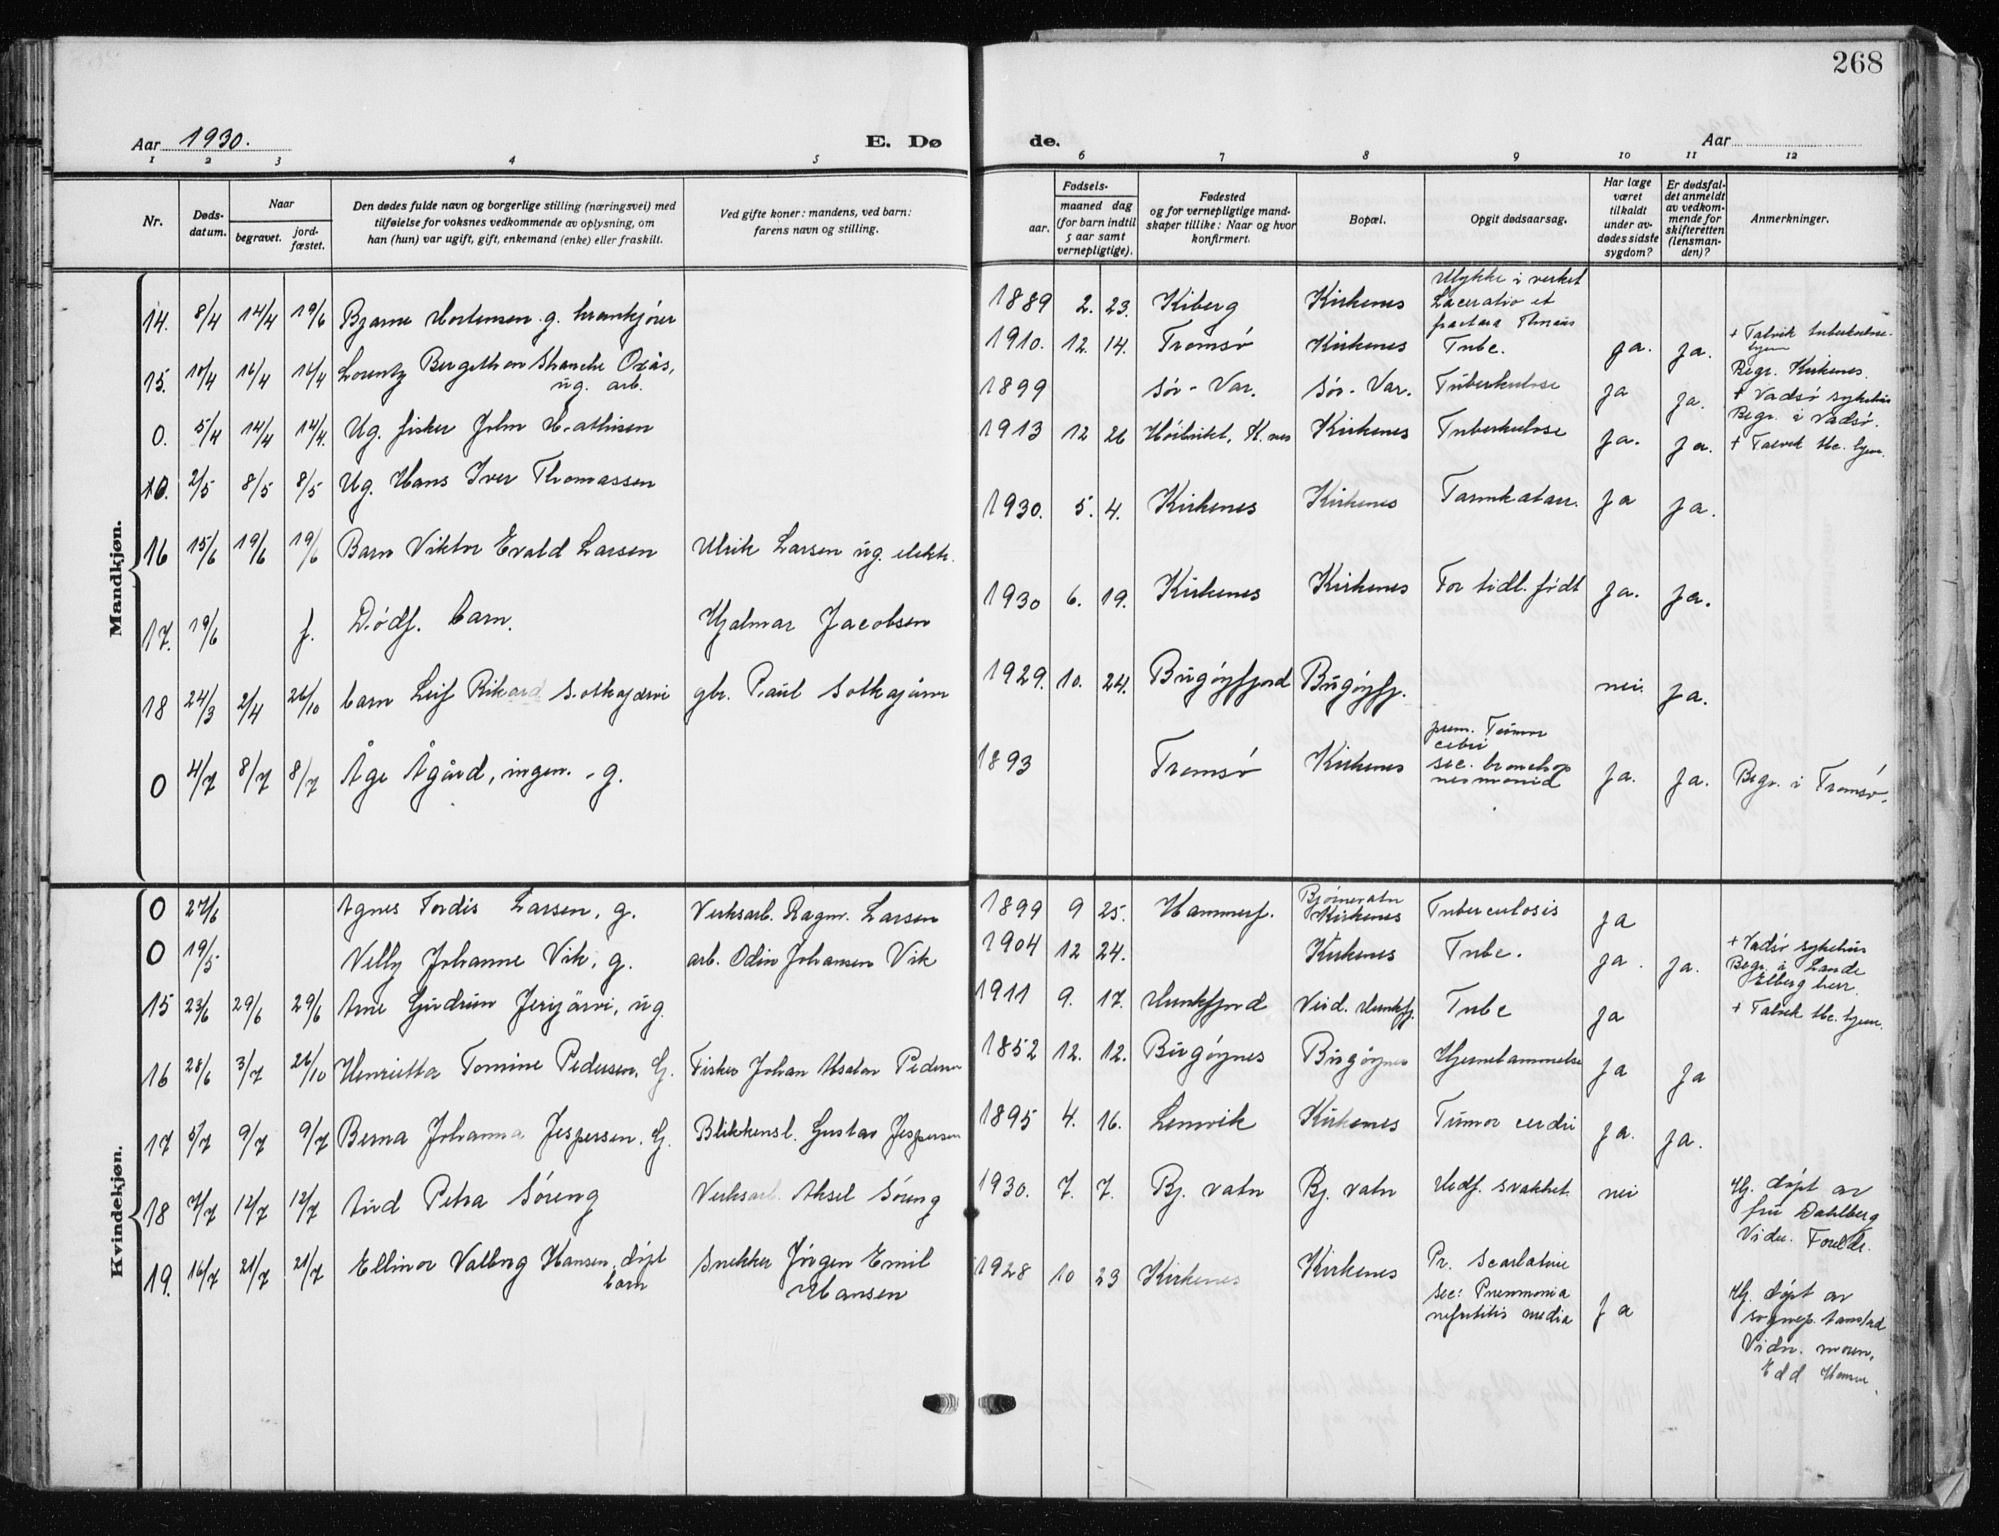 268
Aar 1930.
E. Dø
de.
Aar
1 2 3 4 5 6 7 8 9 10 11 12
Nr.
Døds-
datum.
Naar
begravet.
jord-
fæstet.
Den dødes fulde navn og borgerlige stilling (næringsvei) med
tilføielse for voksnes vedkommende av oplysning, om
han (hun) var ugift, gift, enkemand (enke) eller fraskilt.
Ved gifte koner: mandens, ved barn:
farens navn og stilling.
Fødsels-
aar.
maaned dag
(for barn indtil
5 aar samt
vernepligtige).
Fødested
og for vernepligtige mand-
skaper tillike: Naar og hvor
konfirmert.
Bopæl.
Opgit dødsaarsag.
Har læge
været
tilkaldt
under av-
dødes sidste
sygdom?
Er dødsfal-
det anmeldt
av vedkom-
mende for
skifteretten
(lensman-
den)?
Anmerkninger.
Mandkjøn.
14. 8/4 14/4 19/6 Bjarne Mortensen g. krankjører 1889 2. 23. Kiberg Kirkenes Ulykke i verket
Laceratio et
fractura
15. 10/4 16/4 16/4 Lorentz Bergithon Stanche Oxås,
ug. arb. 1910. 12. 14. Tromsø Kirkenes Tube. ja. ja. + Talvik tuberkulose-
hjem
Begr. Kirkenes.
0. 5/4 14/4 14/4. Ug. fisker John Mathisen 1899 Sør-Var. Sør-Var. Tuberkulose ja ja. + Vadsø sykehus
Begr. i Vadsø.
10. 2/5 8/5 8/5 Ug. Hans Iver Thomassen 1913 12 26 K.nes Kirkenes Tuberkulose ja. ja. + Talvik tbc. hjem.
16 15/6 19/6 19/6 Barn Viktor Evald Larsen Ulrik Larsen ug. elektr. 1930. 5. 4. Kirkenes Kirkenes Tarmkatarr. ja ja.
17. 19/6 f. Dødf. barn. Hjalmar Jacobsen 1930 6. 19. Kirkenes Kirkenes For tidl. født ja. ja.
18 24/3 2/4 26/10 barn Leif Rikard Sotkajærvi gbr. Paul Sotkajærvi 1929. 10. 24. Bugøyfjord Bugøyfj. nei ja.
0 4/7 8/7 8/7 Åge Ågård, ingen. - g. 1893 Tromsø Kirkenes prim. Tumor
cebri
sec. bronchop
neumonid ja. ja. Begr. i Tromsø.
Kvindekjøn.
0 27/6 Agnes Tordis Larsen, g. Verksarb. Ragnv. Larsen 1899 9 25. Hammerf. Bjørnevatn
Kirkenes Tuberculosis ja
0 19/5 Velly Johanne Vik, g. arb. Odin Johansen Vik 1904 12 24. Kirkenes Tube. ja. ja. + Vadsø sykehus
Begr. i Lande
Elberg herr.
15 23/6 29/6 29/6 Arne Gudrun Jerijärvi, ug. 1911 9. 17. Munkfjord Veid. Munkfj. Tube ja + Talvik tbc. hjem.
16 28/6 3/7 26/10 Henrietta Tomine Pedersen. G. Fisker Johan Pedersen 1852 12. 12. Bugøynes Bugøynes ja ja
17 5/7 9/7 9/7 Berna Johanna Jespersen. G. Blikkensl. Gustav Jespersen 1895 4. 16. Lemvik Kirkenes Tumor cerebri ja. ja.
18 7/7 12/7 12/7 Aud Petra Søreng Verksarb. Aksel Søreng 1930. 7. 7. Bj. vatn Bj. vatn Medf. svakhet nei Hj. døpt av
fru Dahlberg
Vidn. Foreldr.
19. 16/7 21/7 21/7 Ellinor Valborg Hansen, døpt
barn Snekker Jørgen Emil
Hansen 1928 10 23 Kirkenes Kirkenes Pr. Scarlatine
sec: Pneumonia
nefritis media ja Hj. døpt av
sognep.
Vidn. moren,
Edd Hansen.